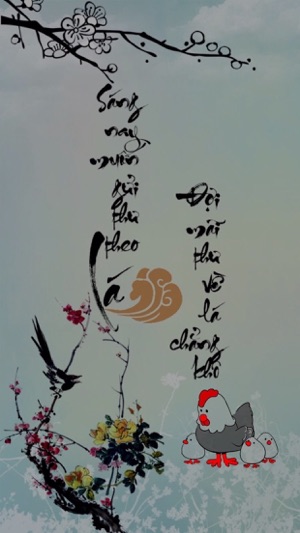 Sáng nay muốn gửi thu theo lá
Đợi mãi thu về lá chẳng khô